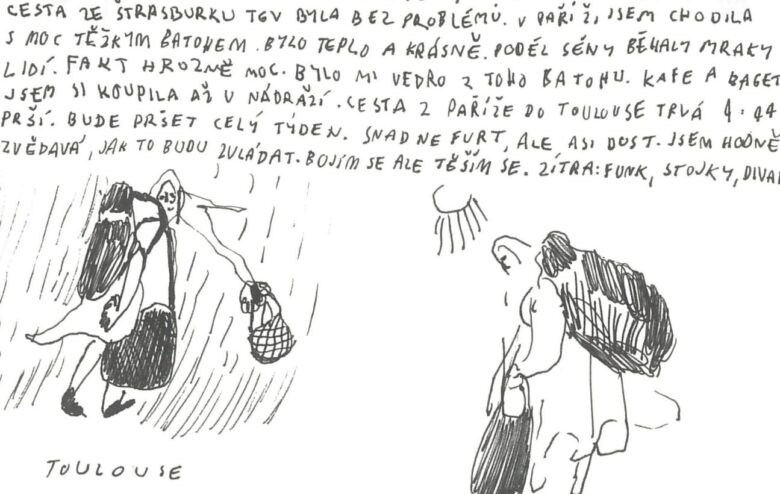 CESTA ZE ŠTRASBURKU TGV BYLA BEZ PROBLÉMŮ. V PAŘÍŽI JSEM CHODILA
S MOC TĚŽKÝM BATOHEM. BYLO TEPLO A KRÁSNĚ. PODÉL SÉNY BĚHALY MRAKY
LIDÍ. FAKT HROZNĚ MOC. BYLO MI VEDRO Z TOHO BATOHU. KAFE A BAGET
JSEM SI KOUPILA AŽ V NÁDRAŽÍ. CESTA Z PAŘÍŽE DO TOULOUSE TRVÁ 4:44
PRŠÍ. BUDE PRŠET CELÝ TÝDEN. SNAD NE FURT, ALE ASI DOST. JSEM HODNĚ
ZVĚDAVÁ, JAK TO BUDU ZVLÁDAT. BOJÍM SE ALE TĚŠÍM SE. ZÍTRA: FUNK, STOJKY, DIVA
TOULOUSE